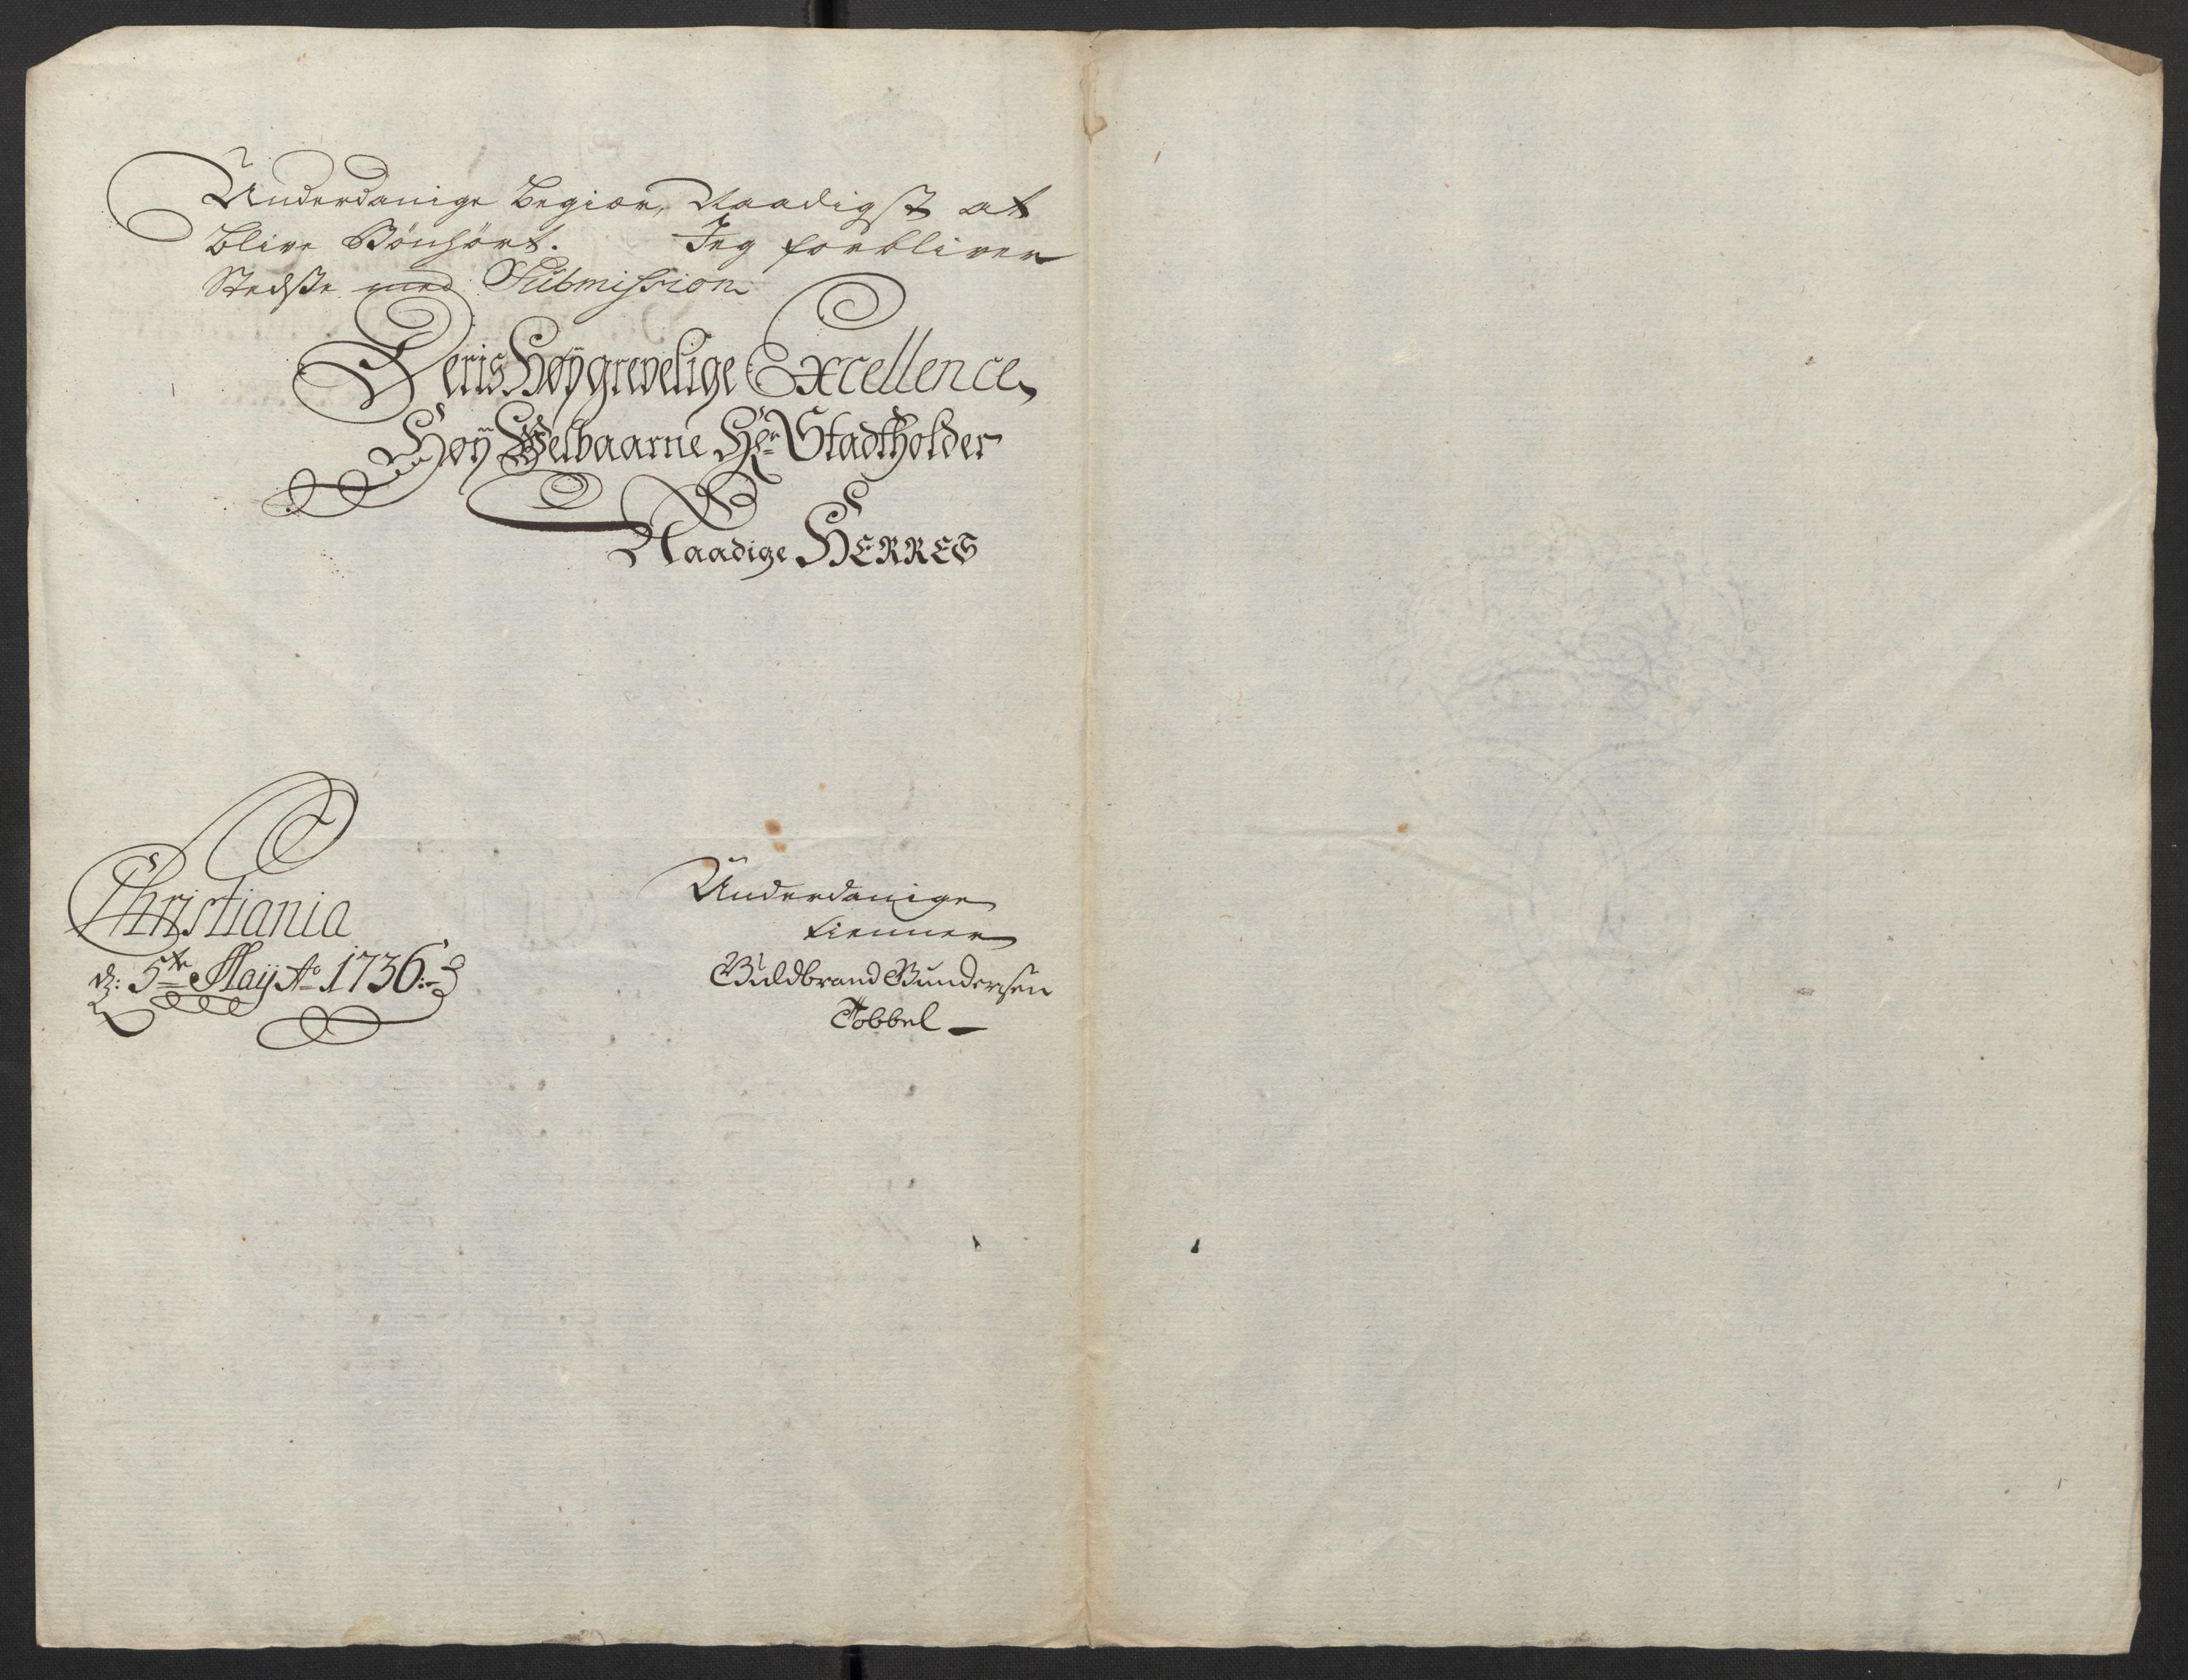 Underdanige Begiær, Naadigst at
blive Bönhört. Jeg forbliver
Stedsse med Submission
Deris Høÿgrevelige Excellence,
Høÿ Welbaarne Hr Stadtholder
Naadige HERRES
Christiania
d: 5te Maÿ Ao 1736:
Underdanige
tienner
Guldbrand Gundersen
Tobbel